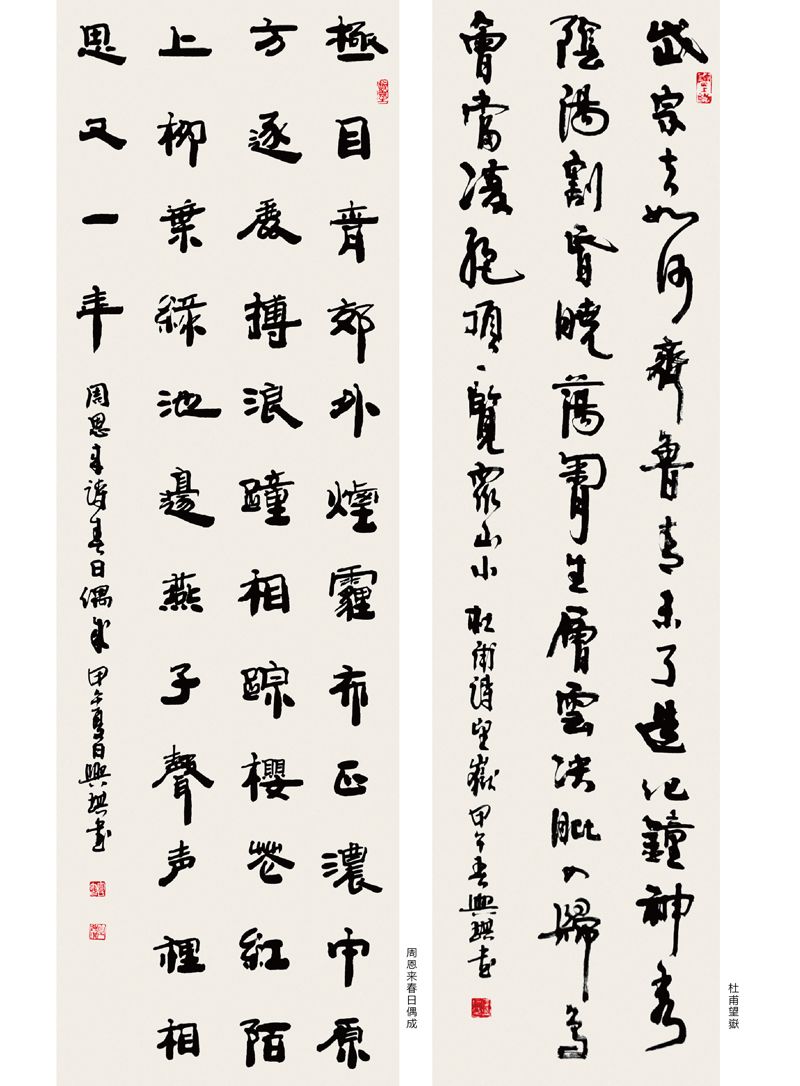 岱宗夫如何齊魯青未了造化鐘神秀
陰陽割昏曉蕩胷生層雲決眦入歸鳥
會當凌絕頂一覽眾山小 杜甫詩望嶽 甲午春興琪書
杜甫望嶽
極目青郊外煙霾布正濃中原
方逐鹿搏浪踵相踪櫻花紅陌
上柳葉綠池邊燕子聲声裡相
思又一年 周恩来詩春日偶成 甲午夏日興琪書
周恩来春日偶成